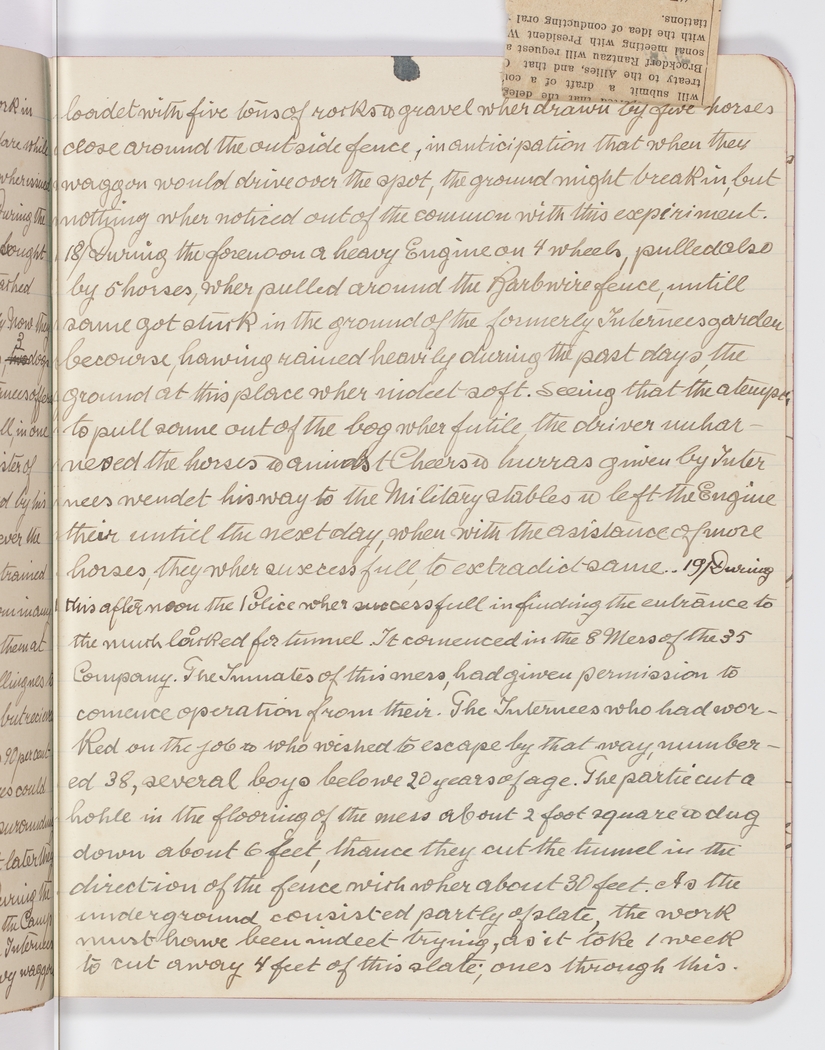 will submit a draft of a
treaty to the Allies, and that
Brockdorf Rantzau will request a
sonal meeting with President W
with the idea of conducting oral
tiations.
loadet with five tons of rocks & gravel wher drawn by five horses
close around the outside fence, in anticipation that when they
waggon would drive over the spot, the ground might break in, but
nothing wher noticed out of the common with this expiriment.
18/ During the forenoon a heavy Engine on 4 wheels, pulled also
by 5 horses, wher pulled around the Barbwire fence, untill
same got stuck in the ground of the formerly Internees garden
becourse, hawing rained heavily during the past days, the
ground at this place wher indeet soft. Seeing that the atempt
to pull same out of the bog wher futile, the driver unhar-
nesed the horses & amidst Cheers & hurras given by Inter
nees wendet his way to the Military stables & left the Engine
their untill the next day, when with the asistance of more
horses, they wher suxcessfull, to extradict same.. 19/ During
this afternoon the Police wher successfull in finding the entrance to
the much looked for tunnel. It comenced in the 8 Mess of the 35
Company. The Inmates of this mess, had given permission to
comence operation from their. The Internees who had wor-
ked on the job & who wished to escape by that way, number-
ed 38, several boys belowe 20 years of age. The partie cut a
hohle in the flooring of the mess about 2 foot square & dug
down about 6 feet, thance they cut the tunnel in the
direction of the fence wich wher about 30 feet. As the
underground consisted partly of slate, the work
must hawe been indeet trying, as it toke 1 week
to cut away 4 feet of this slate; ones through this.